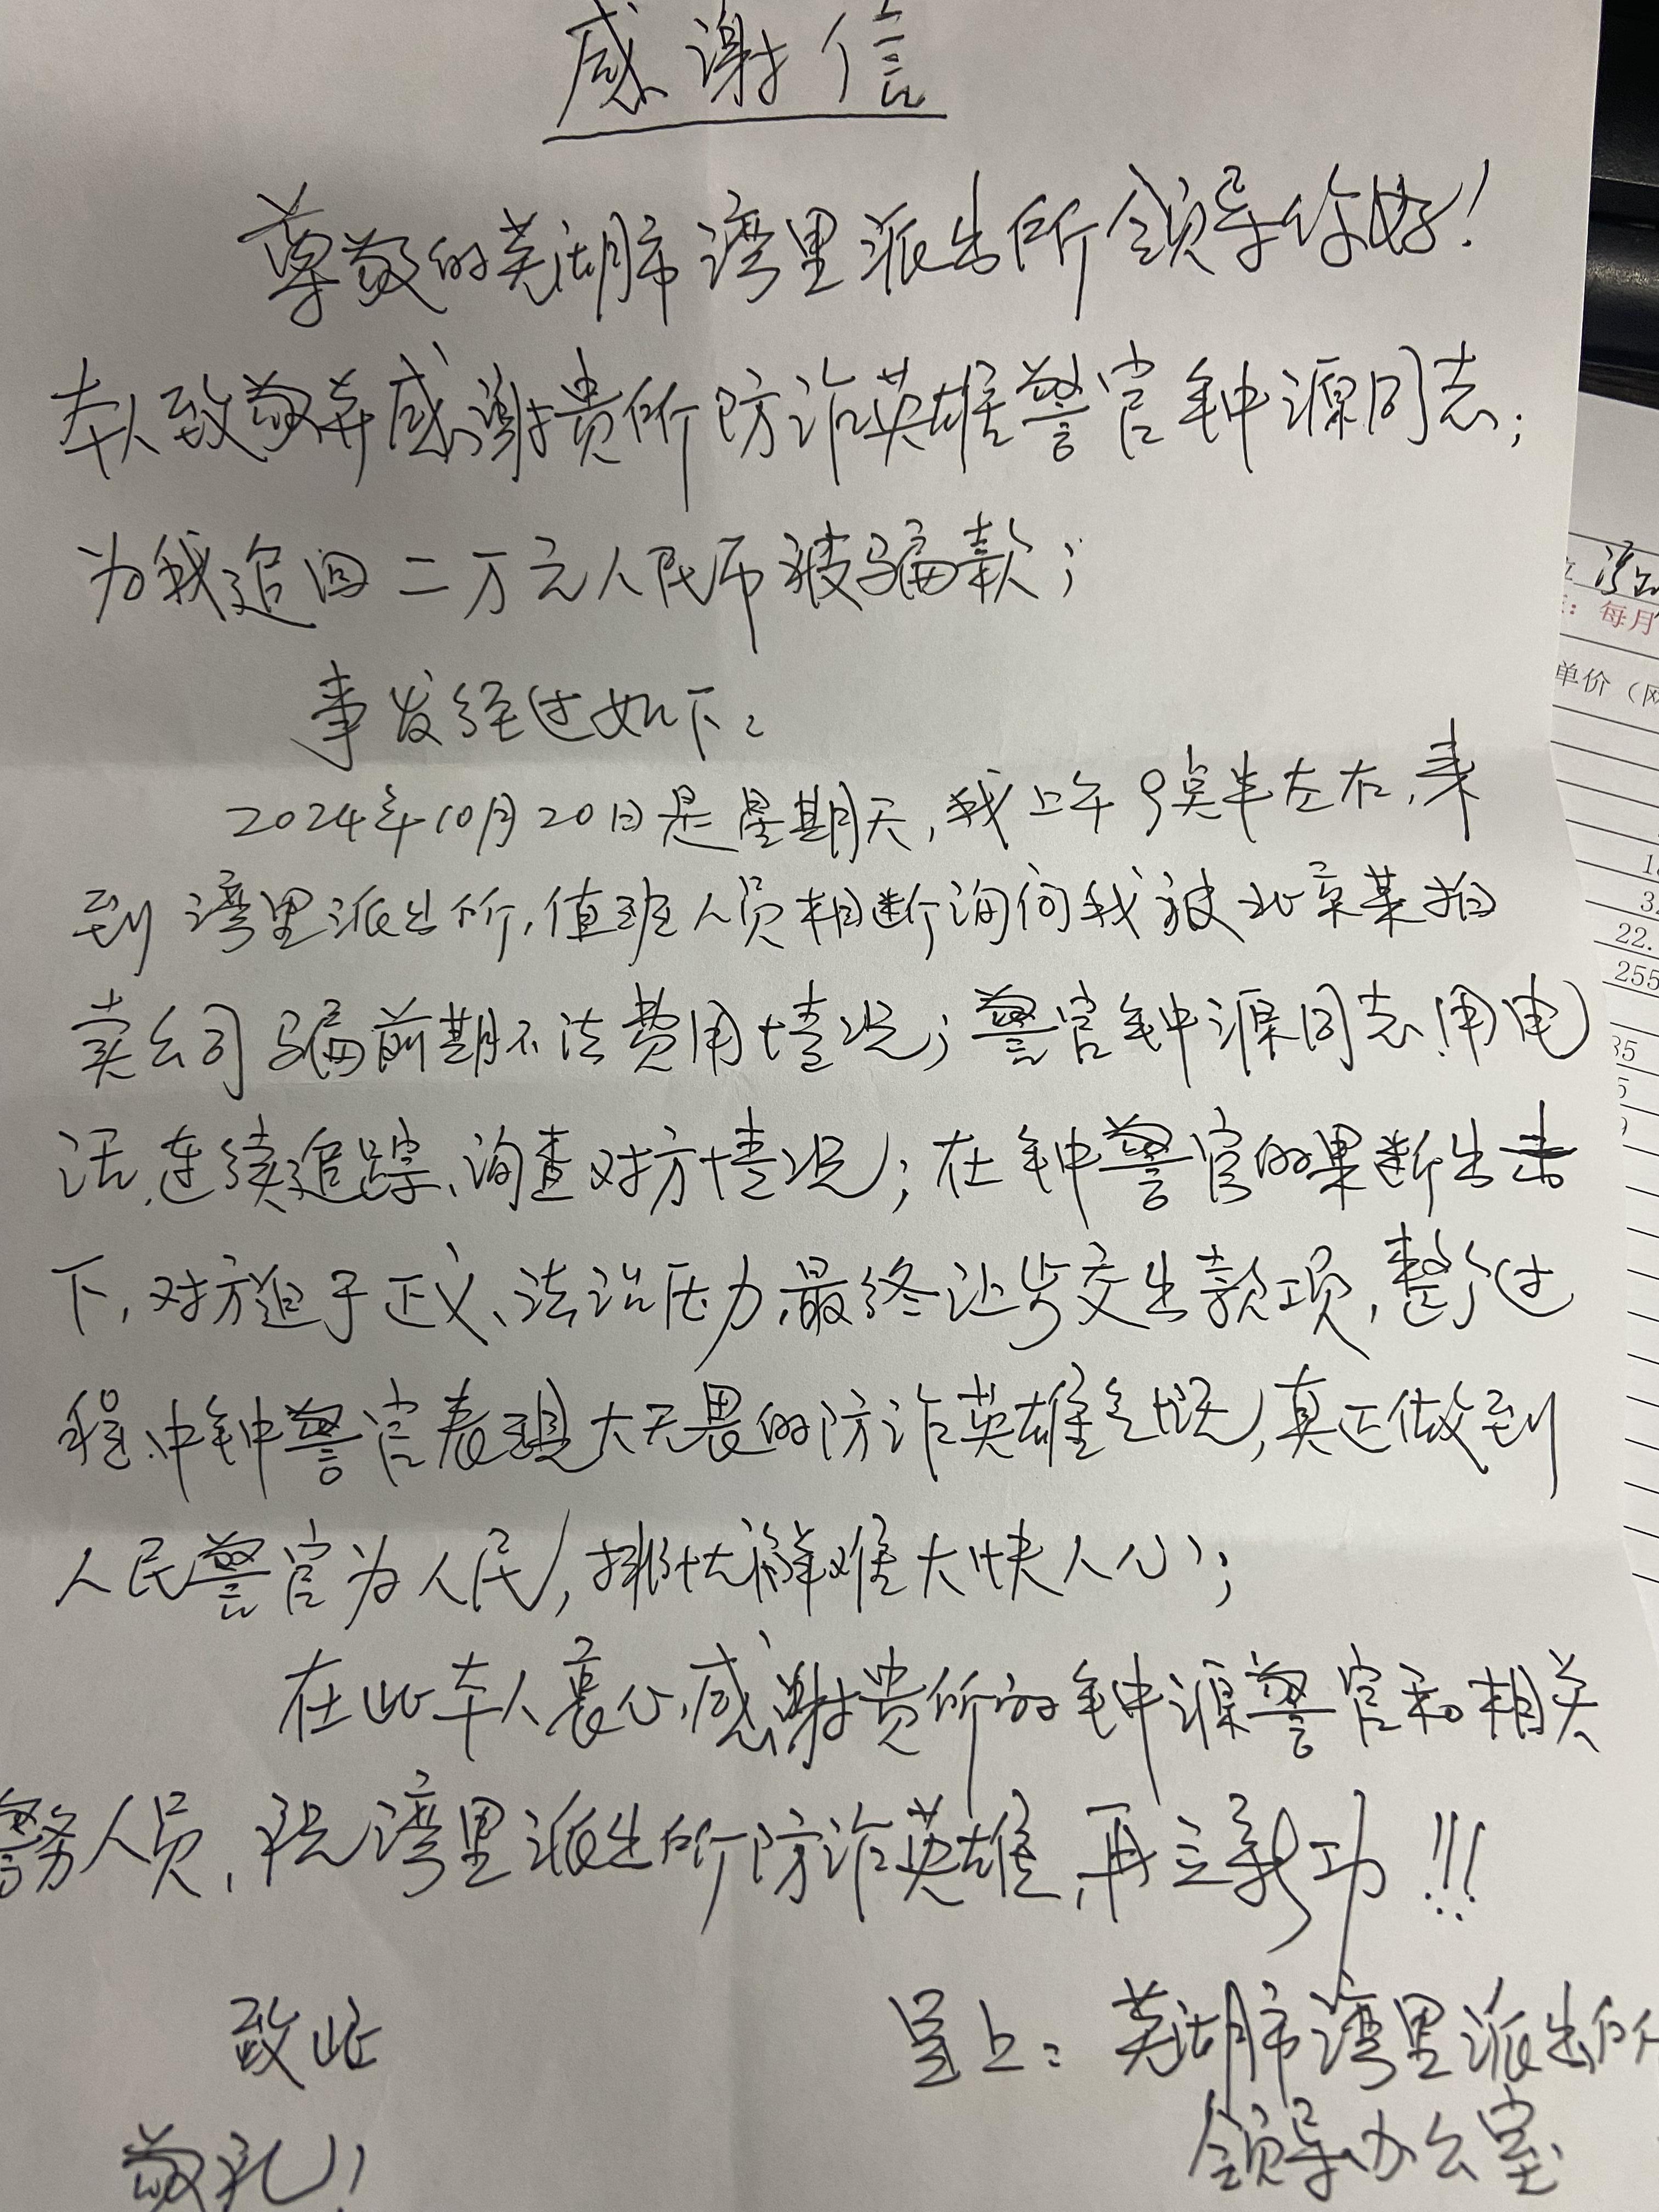 感谢信
尊敬的芜湖市湾里派出所领导你好!
本人致敬并感谢贵所防诈英雄警官钟源同志;
为我追回二万元人民币被骗款;
事发经过如下:
2024年10月20日是星期天,我上午9点半左右,来
到湾里派出所,值班人员相断询问我被北京某拍
卖公司骗前期不法费用情况;警官钟源同志用电
话、连续追踪、询查对方情况;在钟警官的果断出击
下,对方迫于正义、法治压力,最终让步交出款项,整个过
程中钟警官表现大无畏的防诈英雄气慨,真正做到
人民警官为人民,排忧解难大快人心;
在此本人衷心感谢贵所的钟源警官和相关
警务人员,祝湾里派出所防诈英雄,再立新功!!!
致此
呈上:芜湖市湾里派出所
领导办公室
敬礼!
: 每月
单价(网
22.
255
35
5